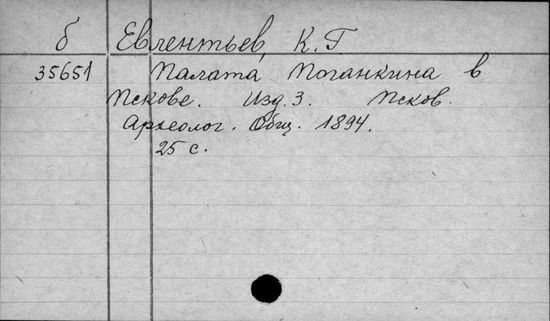 б Евлентьев, К. Г
35651 Палата Поганкина в
Пскове. Изд. 3. Псков.
Археолог. Общ. 1894.
25 с.